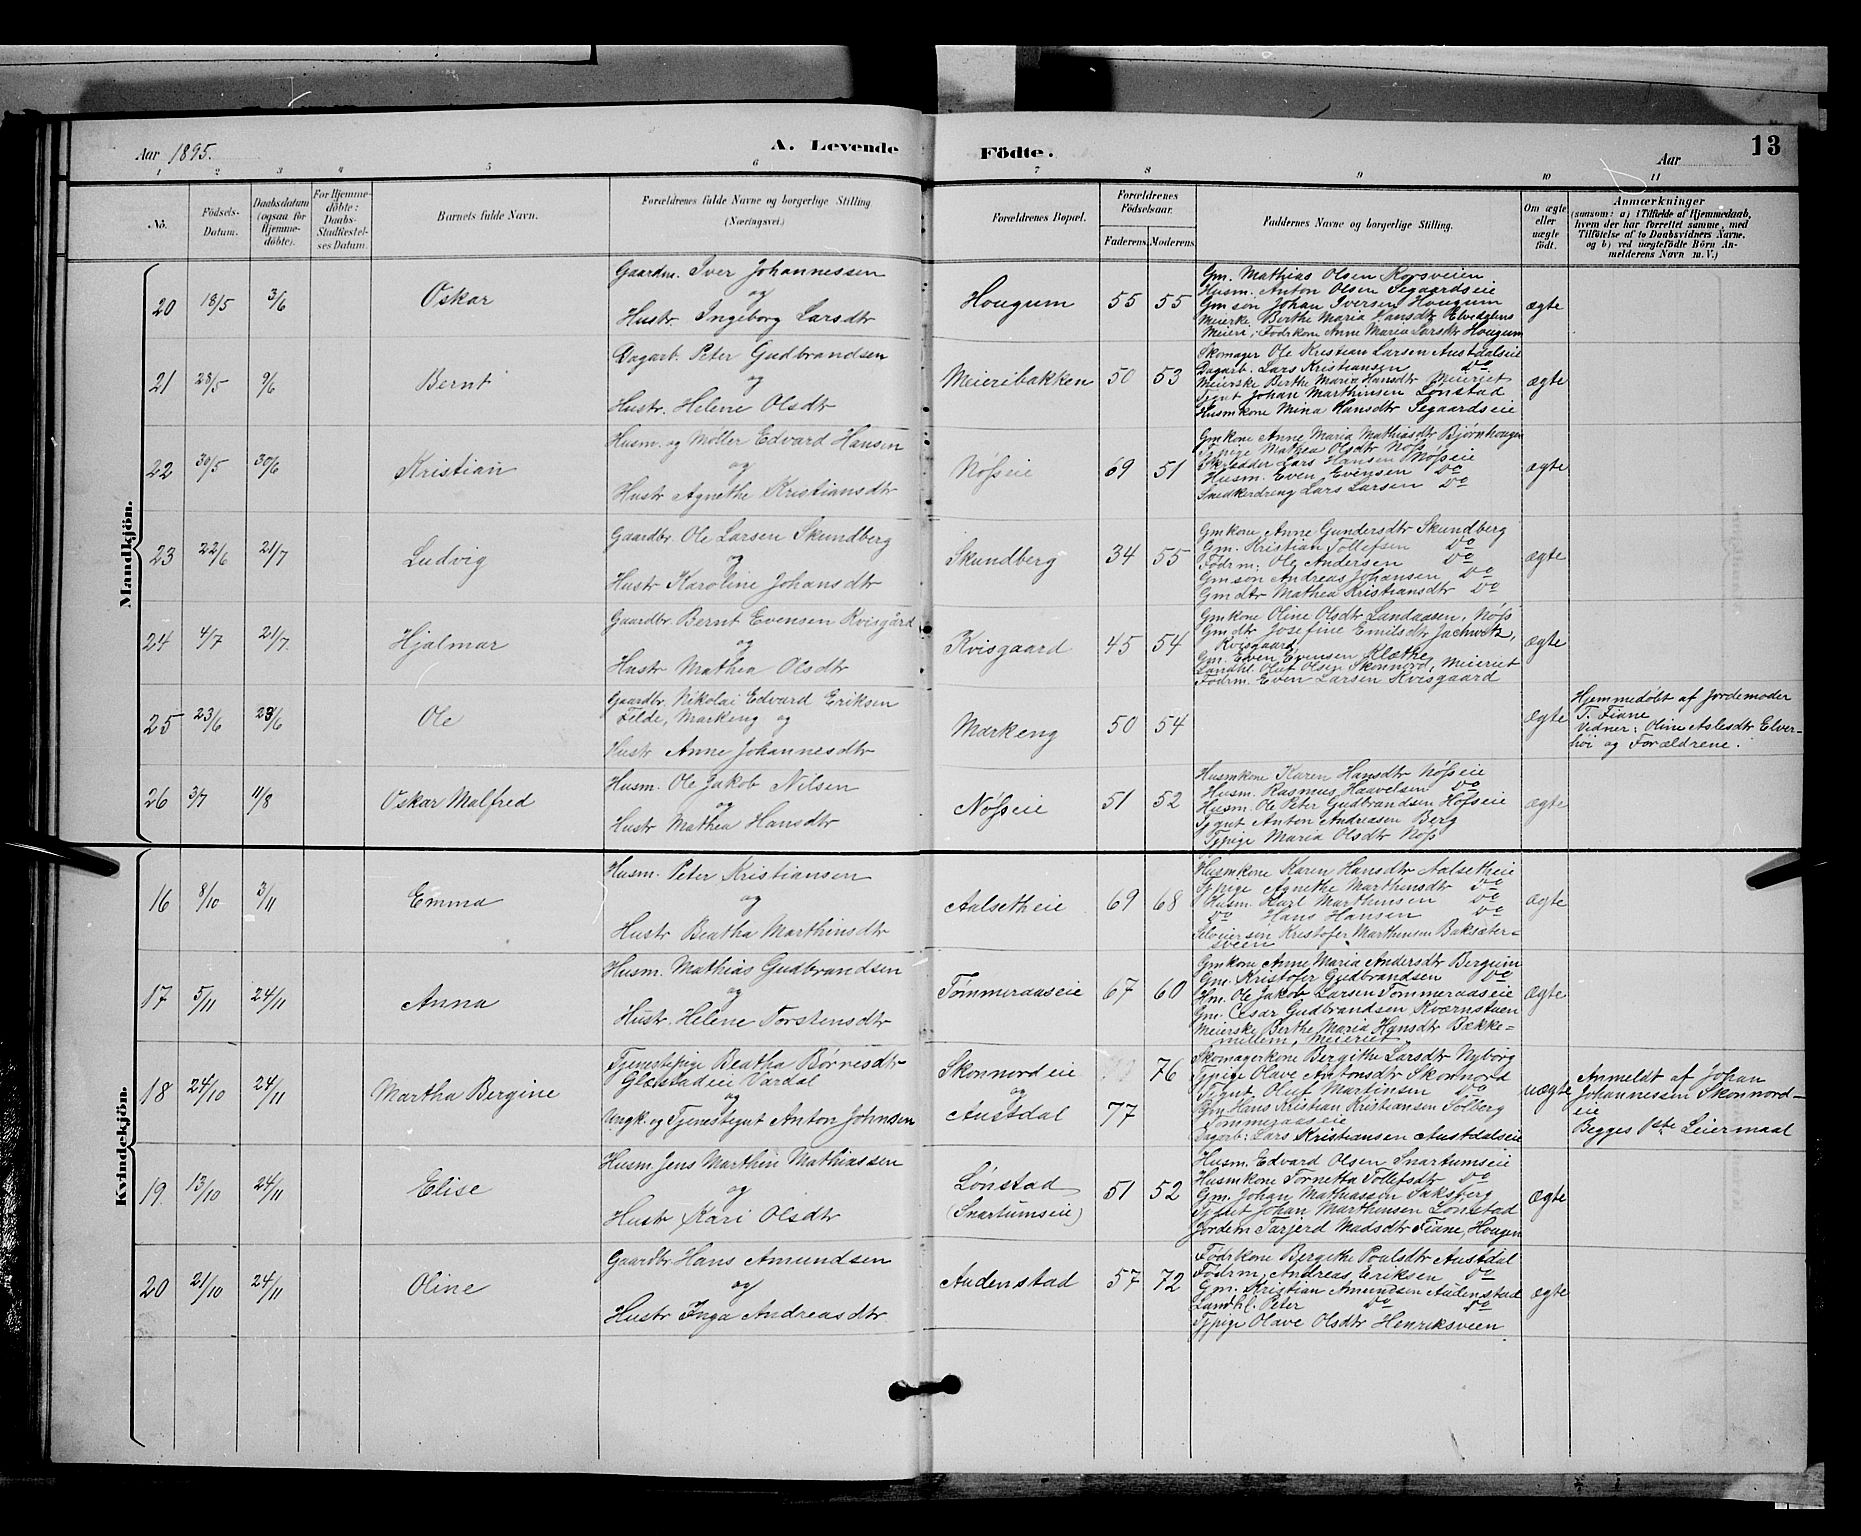 Aar 1895.
A. Levende Födte.
Aar
13
1 2 3 4 5 6 7 8 9 10 11
No.
Födsels-Datum.
Daabsdatum (ogsaa for Hjemme-döbte).
For Hjemme-döbte: Daabs-Stadfæstel-ses Datum.
Barnets fulde Navn.
Forældrenes fulde Navne og borgerlige Stilling (Næringsvei.)
Forældrenes Bopæl.
Forældrenes Födselsaar.
Faderens. Moderens.
Faddernes Navne og borgerlige Stilling.
Om ægte eller uægte født.
Anmærkninger
(saasom: a) i Tilfælde af Hjemmedaab,
hvem der har forrettet samme, med
Tilföielse af to Daabsvidners Navne.
og b) ved uægtefödte Börn An-
melderens Navn m. V.)
Mandkjön.
20 18/5 3/6 Oskar
Gaardm. Iver Johannessen
og
Hustr. Ingeborg Larsdtr
Hougum 55 55
Gm. Mathias Olsen Korsveien
Husm. Anton Olsen Segaardseie
Gmsøn Johan Iversen Hougum
Meierke Berthe Maria Hansdtr
Meieri, Fødrkone Anne Maria Larsdtr Hougum
ægte
21 28/5 9/6 Bernt
Dagarb. Peter Gudbrandsen
og
Hustr. Helene Olsdtr
Meieribakken 50 53
Skomager Ole Kristian Larsen Austdalseie
Dagarb. Lars Kristiansen Do
Meierske Berthe Maria Hansdtr Meieriet
Tjgut Johan Marthinsen Lønstad
Husmkone Mina Hansdtr Segaardseie
ægte
22 30/5 30/6 Kristian
Husm. og Møller Edvard Hansen
og
Hustr Agnethe Kristiansdtr
Nøfseie 69 51
Gmkone Anne Maria Mathiasdtr Bjørnhougen
Tjpige Mathea Olsdtr Nøfs
Skrædder Lars Hansen Nøfseie
Husm. Even Evensen Do
Snedkerdreng Lars Larsen Do
ægte
23 22/6 21/7 Ludvig
Gaardbr. Ole Larsen Skundberg
og
Hustr Karoline Johansdtr
Skundberg 34 55
Gmkone Anne Gundersdtr Skundberg
Gm. Kristian Tollefsen Do
Fødrm: Ole Andersen Do
Gmsøn Andreas Johansen Do
Gmdtr Mathea Kristiansdtr Do
ægte
24 4/7 21/7 Hjalmar
Gaardbr. Bernt Evensen Kvisgård
og
Hustr Mathea Olsdtr
Kvisgaard 45 54
Gmkone Oline Olsdtr Lundaasen, Nøfs
Gmdtr Josefine Emilsdtr Jachwitz,
Kvisgaard
Gm. Even Evensen Kløthe
Landhl. Oluf Olsen Skonnord, Meieriet
Fødrm. Even Larsen Kvisgaard
ægte
25 23/6 23/6 Ole
Gaardbr. Nikolai Edvard Eriksen
Felde, Markeng og
Hustr Anne Johannesdtr
Markeng 50 54
ægte
Hjemmedøbt af Jordemoder
T. Fiane
Vidner: Oline Aslesdtr Elver-
høi og Forældrene.
26 3/7 11/8 Oskar Malfred
Husm. Ole Jakob Nilsen
og
Hustr Mathea Hansdtr
Nøfseie 51 52
Husmkone Karen Hansdtr Nøfseie
Husm. Rasmus Haavelsen Do
Husm. Ole Peter Gudbrandsen Høfseie
Tjgut Anton Andreasen Berg
Tjpige Maria Olsdtr Nøfs
ægte
Kvindekjön.
16 8/10 3/11 Emma
Husm. Peter Kristiansen
og
Hustr Beatha Marthinsdtr
Aalsetheie 69 68
Husmkone Karen Hansdtr Aalsetheie
Tjpige Agnethe Marthinsdtr Do
Husm. Karl Marthinsen Do
Do Hans Hansen Do
Selveiersøn Kristofer Marthinsen Baksæter-
sveen
ægte
17 5/11 24/11 Anna
Husm. Mathias Gudbrandsen
og
Hustr. Helene Torstensdtr
Tømmeraaseie 67 60
Gmkone Anne Maria Andersdtr Bergum
Gm. Kristofer Gudbrandsen Do
Hm. Ole Jakob Larsen Tømmeraaseie
Gm. Cesar Gudbrandsen Kværnstuen
Meierske Berthe Maria Hansdtr Bække-
mellem, Meieriet
ægte
18 24/10 24/11 Martha Bergine
Tjenestepige Beatha Børresdtr
Glæstadeie Vardal
og
Ungk. og Tjenestegut Anton Johnsen
Skonnordeie
og
Austdal
76
77
Skomagerkone Bergithe Larsdtr Nyborg
Tjpige Olave Antonsdtr Skonnord
Tjgut Oluf Martinsen Do
Hans Kristian Kristiansen Solberg
Tømmeraaseie
Dagarb: Lars Kristiansen Austdalseie
uægte
Anmeldt af Johan
Johannessen Skonnord-
eie
Begges 1ste Leiermaal
19. 13/10 24/11 Elise
Husm. Jens Marthin Mathiassen
og
Hustr Kari Olsdtr
Lønstad
(Snartumseie)
51 52
Husm. Edvard Olsen Snartumseie
Husmkone Tornetta Tollefsdtr Do
Gm. Johan Mathiassen Saksberg
Johan Marthinsen Lønstad
Jordem Tarjerd Madsdtr Fiane, Hougen
ægte
20 21/10 24/11 Oline
Gaardbr. Hans Amundsen
og
Hustr Inga Andreasdtr.
Audenstad 57 72
Fødrkone Bergithe Poulsdtr Austdal
Fødrm. Andreas Eriksen Do
Gm. Kristian Amundsen Audenstad
Landhl. Peter Do Do
Tjpige Olave Olsdtr Henriksveen
ægte